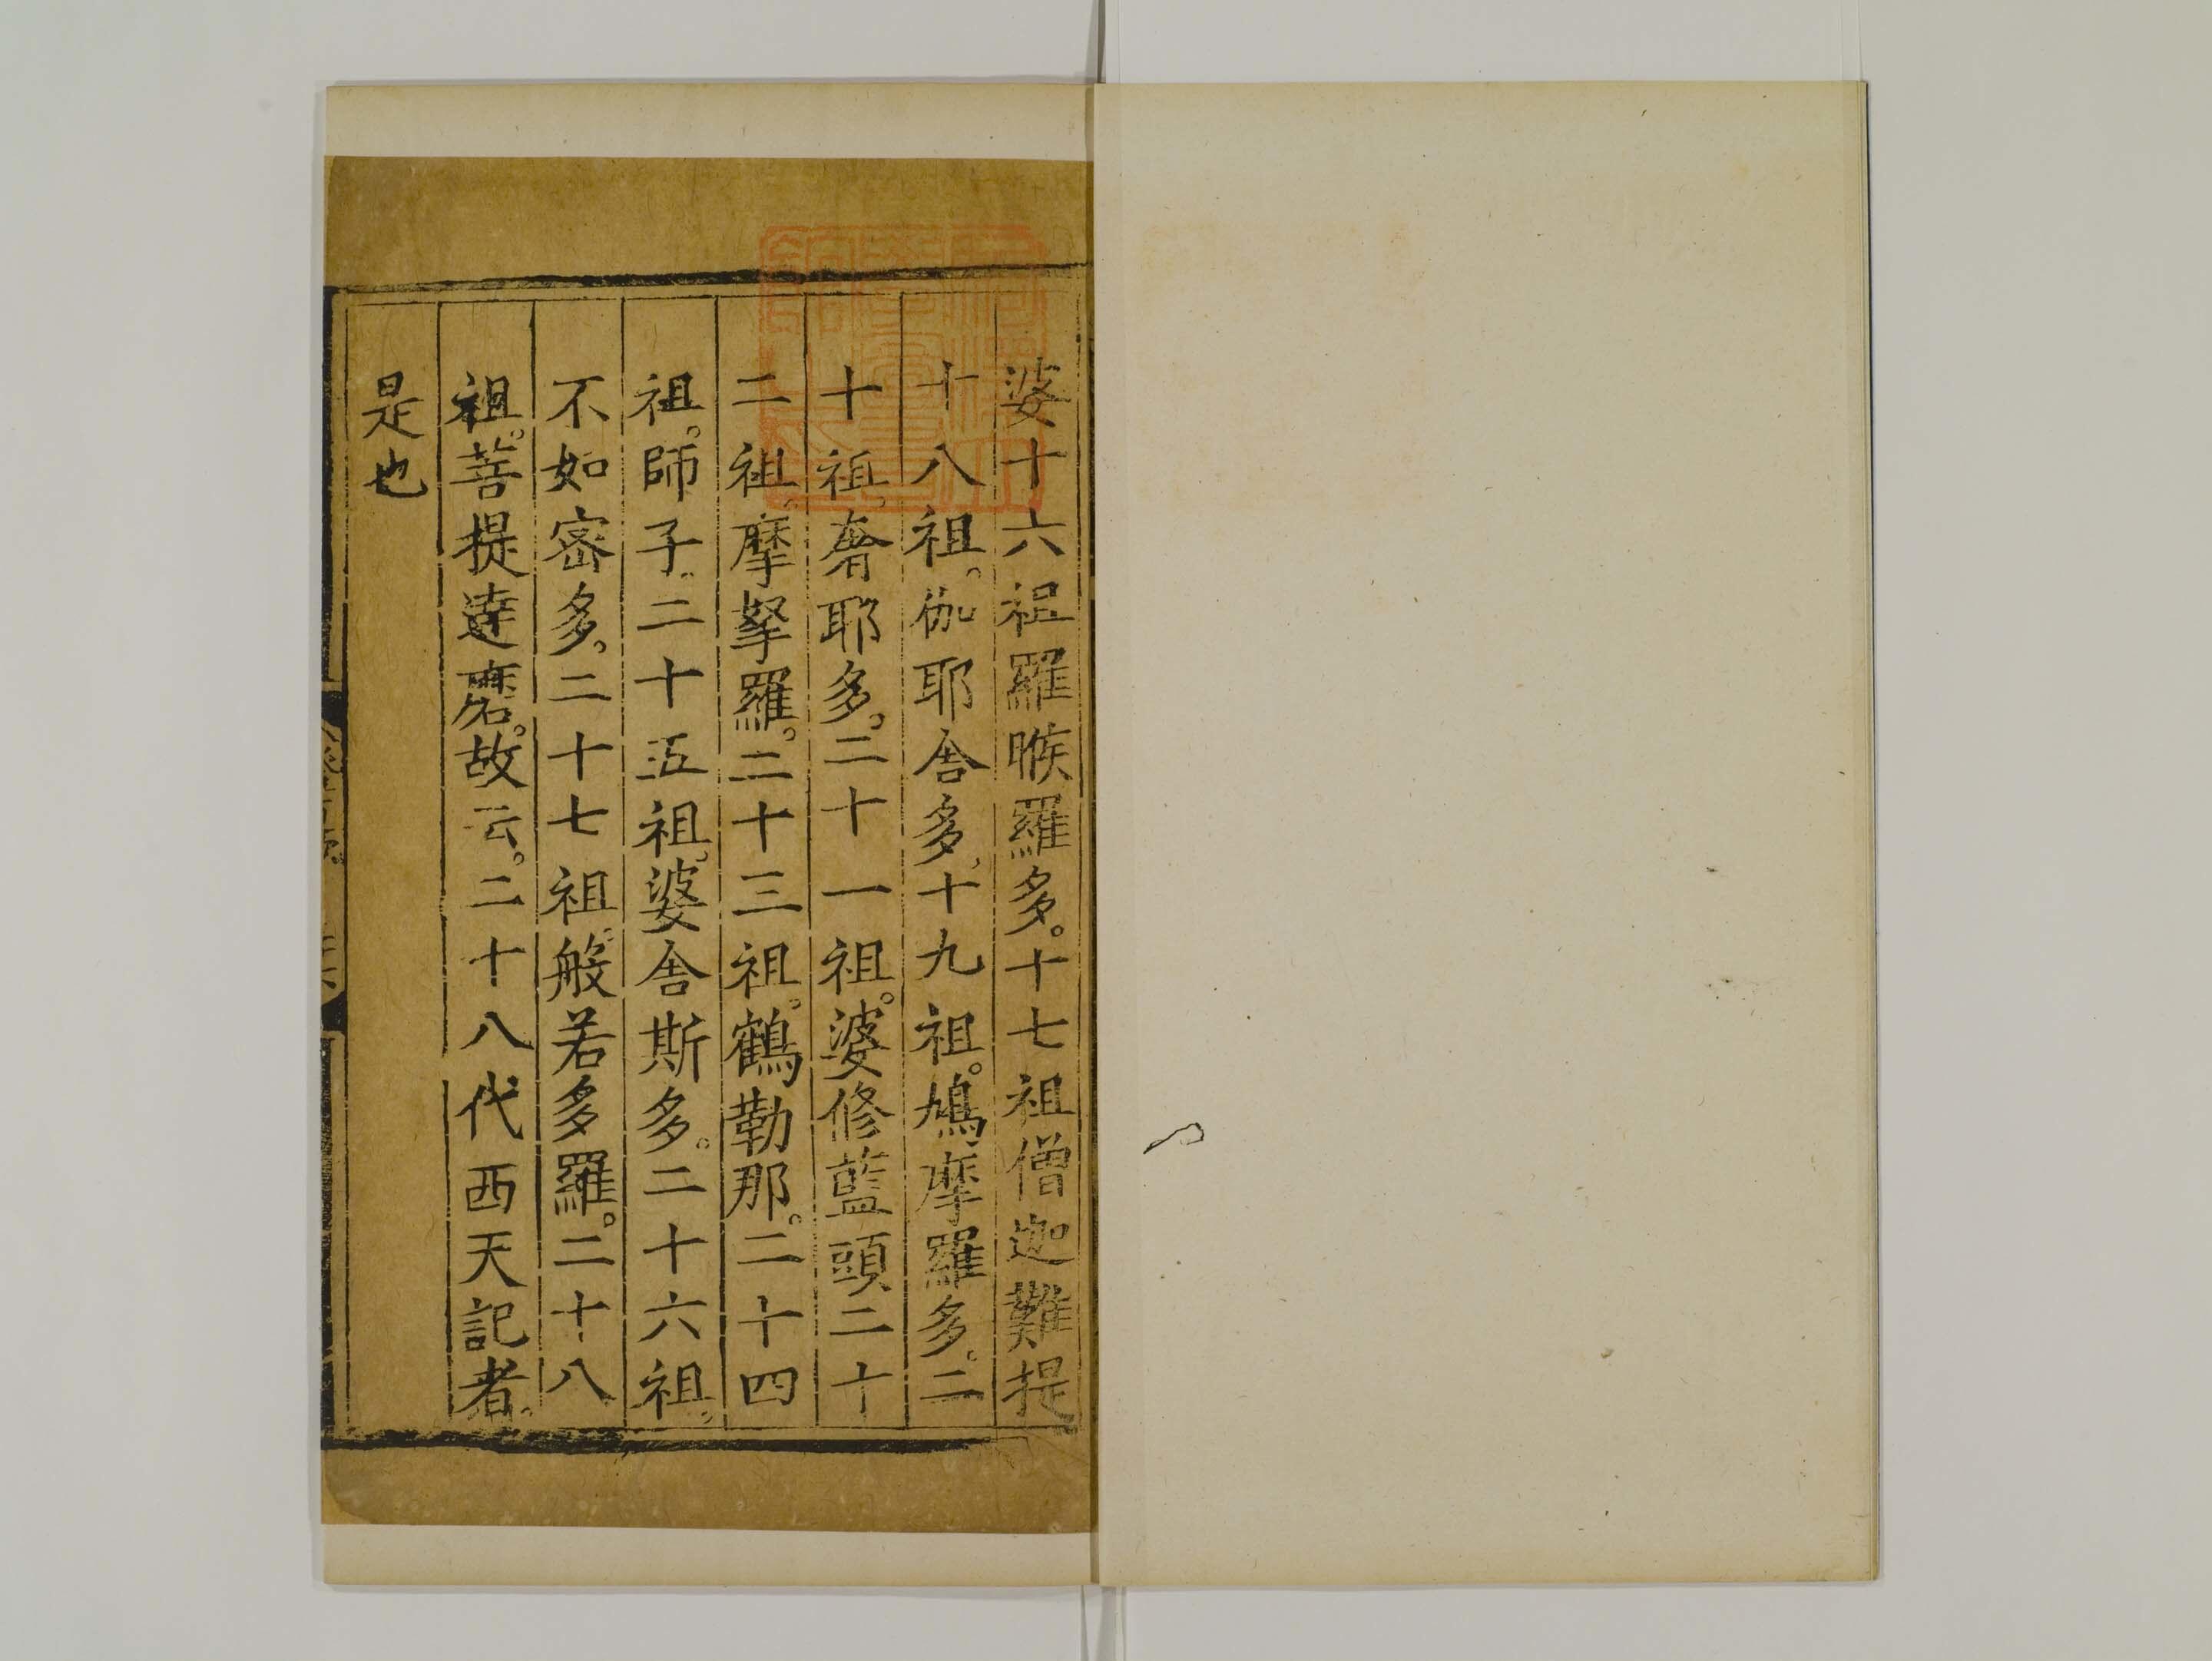 婆十六祖羅睺羅多。十七祖僧迦難提
十八祖。伽耶舎多、十九祖。鳩摩羅多。二
十祖。奢耶多。二十一祖。婆修藍頭二十
二祖。摩拏羅。二十三祖。鶴勒那。二十四
祖。師子。二十五祖。婆舎斯多。二十六祖。
不如密多。二十七祖。般若多羅。二十八
祖。菩提達磨。故云。二十八代西天記者。
是也